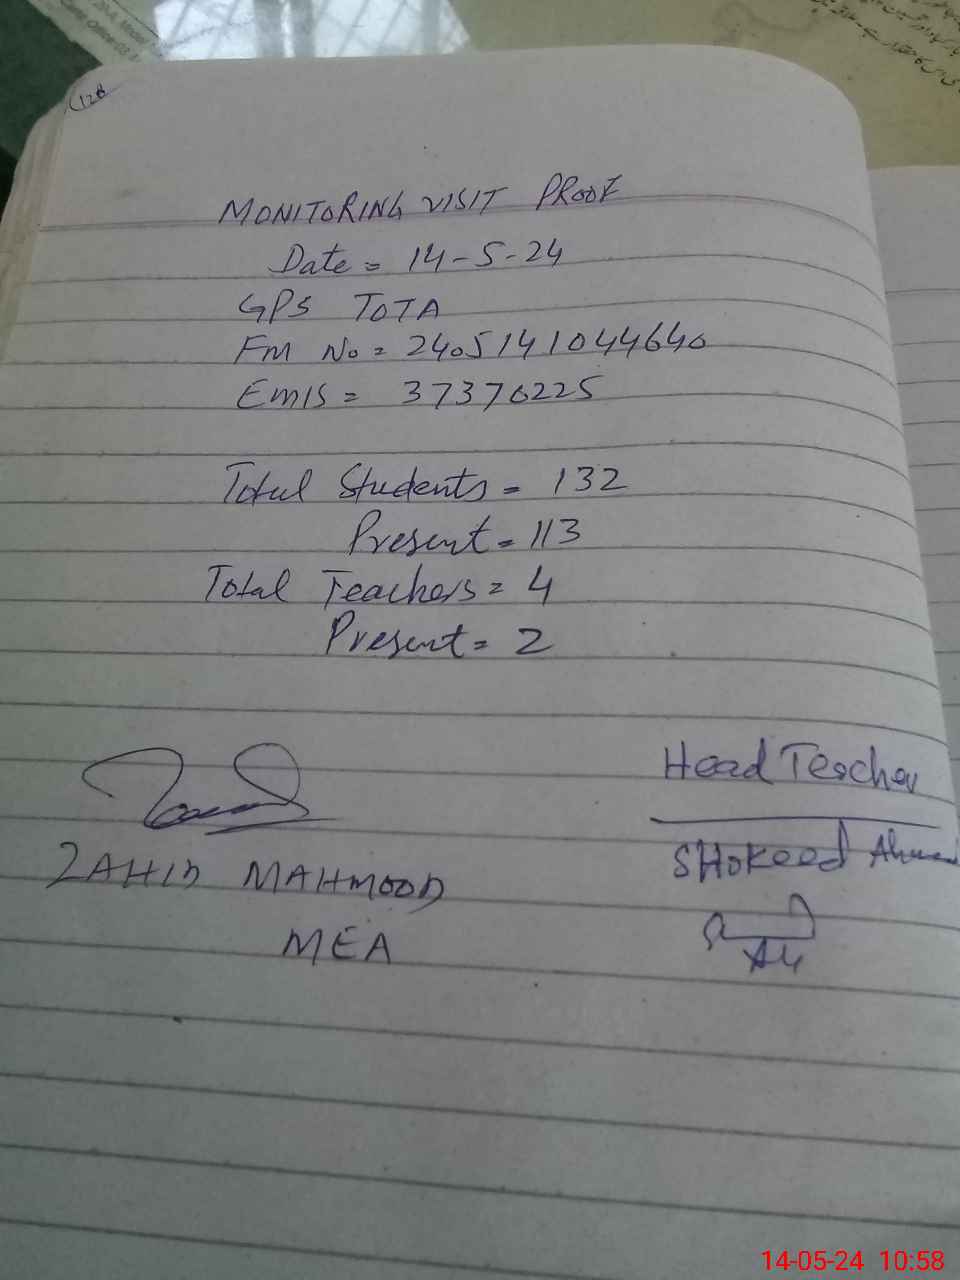 128
MONITORING VISIT PROOF
Date = 14-5-24
GPS TOTA
Fm No = 2405141044640
Emis = 37370225
Total Students = 132
Present = 113
Total Teachers = 4
Present = 2
Head Teacher
ZAHID MAHMOOD
SHakeed Ahmed
MEA
14-05-24 10:58